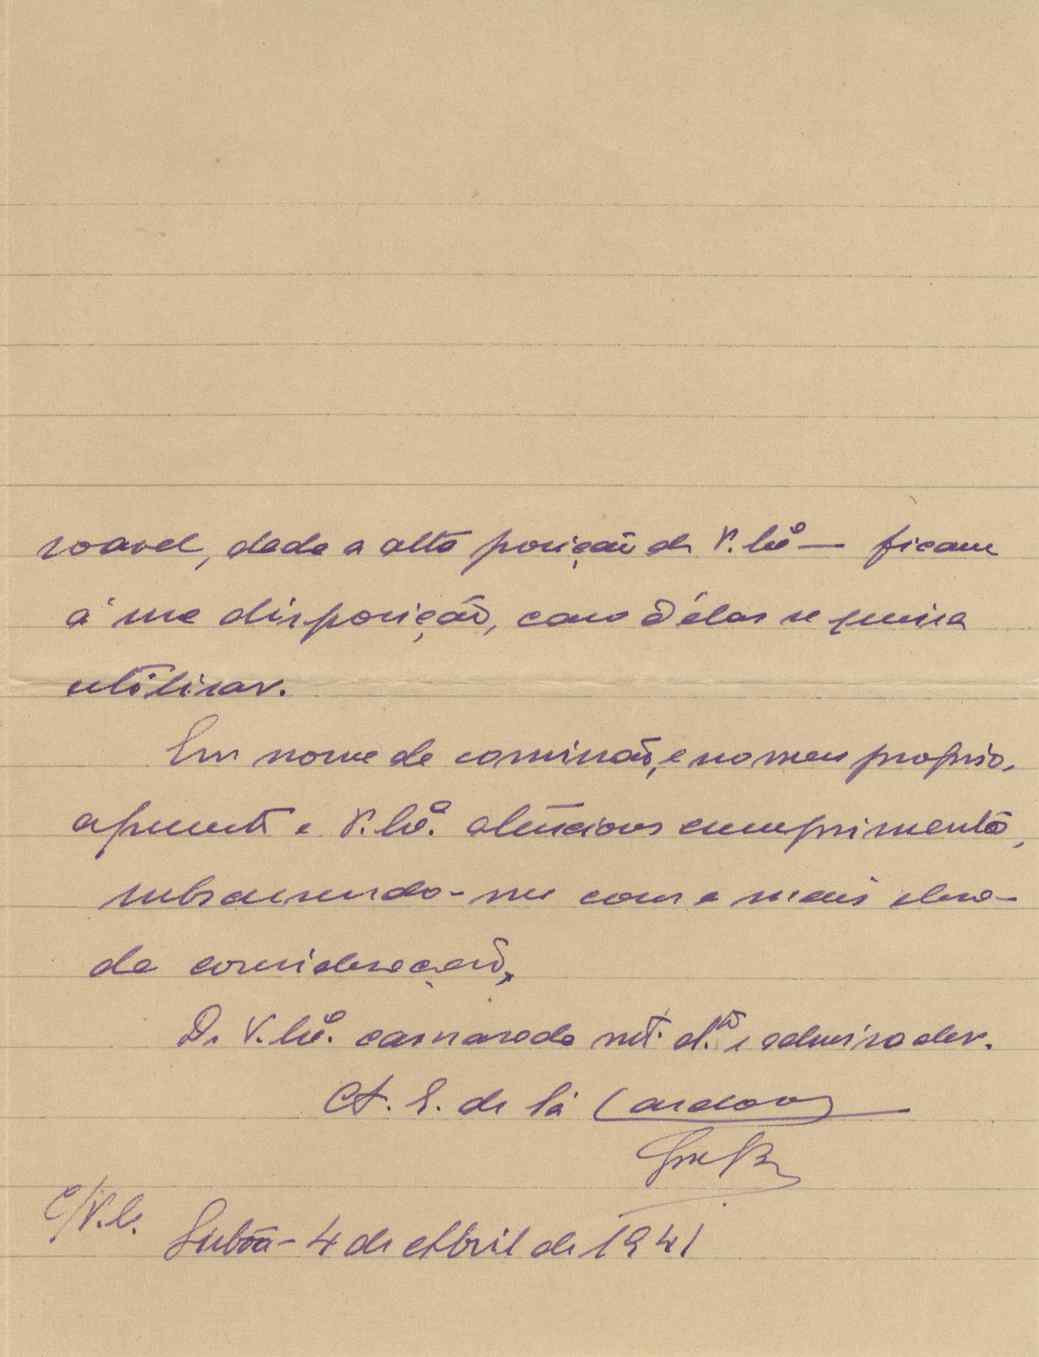 soavel, dada a alta posição de V. Exª — ficam
á sua disposição, caso d'élas se queira
utilisar.
Em nome da comissão, e no meu proprio,
apresento a V. Exª. atenciosos cumprimentos,
subscrevendo-me com a mais eleva-
da consideração,
De V. Exª. camarada mtº. att.º e admirador.
A. E. de Sá Cardoso
C/V. E.
Lisboa - 4 de Abril de 1941